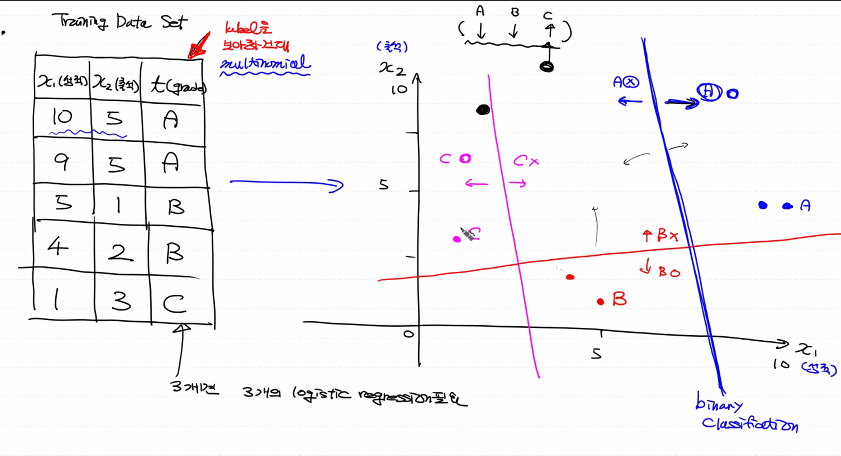 Training Data Set
label을
보아하건대
multinomial
x₁(성적) x₂(출석) t(grade)
10 5 A
9 5 A
5 1 B
4 2 B
1 3 C
3개면 3개의 logistic regression필요
A B C
(↓ ↓ ↑)
(출석)
x₂
10
5
0
5
10
x₁
(성적)
C
C×
C
A⊗
Ⓐ
A
↑B×
↓BO
B
binary
classification